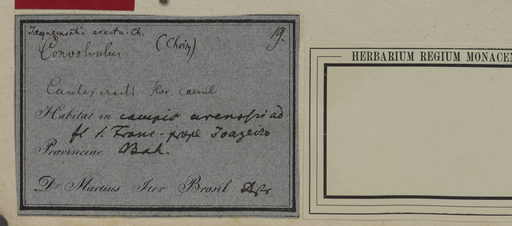 Jaquemontia erecta Ch.
Convolvulus (Choisy) 19.
Caules erecti Flor. caerul
Habitat in campis arenosis ad
fl. S. Franc. prope Joazeiro
Provinciae Bah.
Dr Martius Iter Brasil
HERBARIUM REGIUM MONACEN